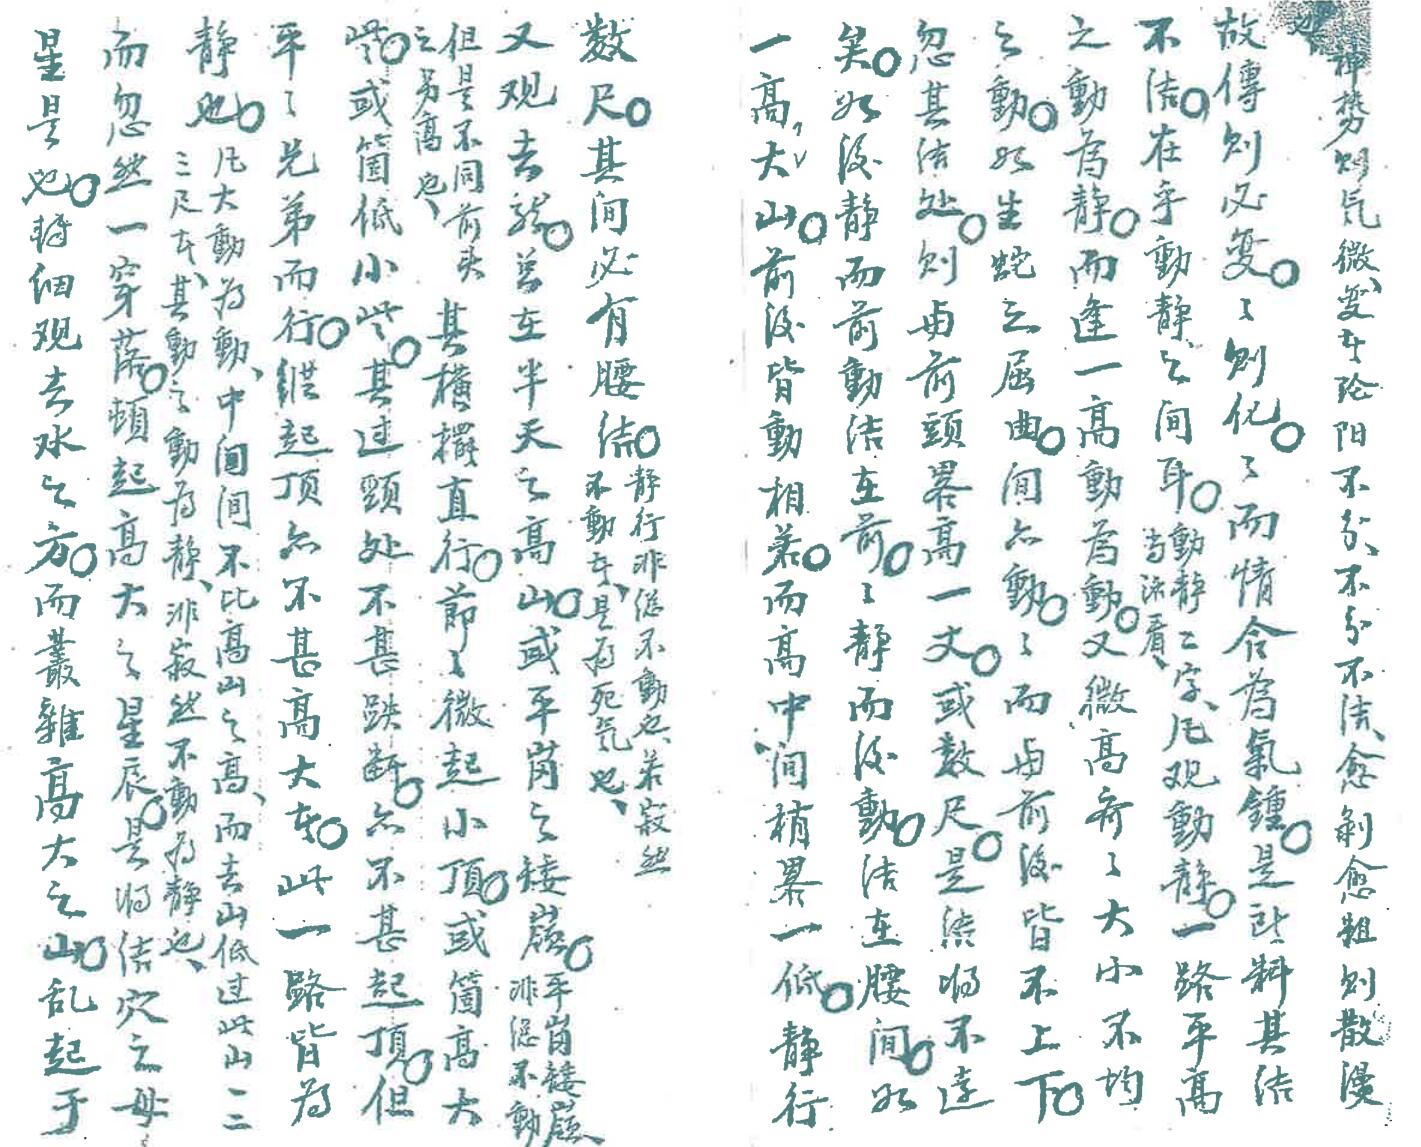 神势则气微、变者阴阳不分、不分不结、愈剥愈粗则散漫
也
故傳则必变〻则化〻而情合為氣鍾是以料其结
不结在乎動静之间耳
動静二字、凡观動静一路平高
当活看、
之動為静而逢一高動為動又微高齐〻大小不均
之動如生蛇之屈曲间亦動〻而与前後皆不上下
忽其结处则与前頭畧高一丈或数尺是结將不遠
矣如後静而前動结在前〻静而後動结在腰间如
一高大山前後皆動相若而高中间稍畧一低静行
数尺其间必有腰结
静行非从不動也、若寂然
不動者、是為死气也、
又观去龍若在半天之高山或平崗之矮嶺
平崗矮嶺、
非从不動
但是不同前头
之另高也、
其横摆直行節〻微起小頂或箇高大
些或箇低小些其过頸处不甚跌断亦不甚起頂但
平〻兄弟而行縱起顶亦不甚高大者此一路皆為
静也
凡大動為動、中间间不比高山之高、而去山低过此山一二
三尺者、其動之動為静、非寂然不動為静也、
而忽然一穿落頓起高大之星辰是將结穴之母
星是也转细观去水之方而叢雜高大之山乱起于